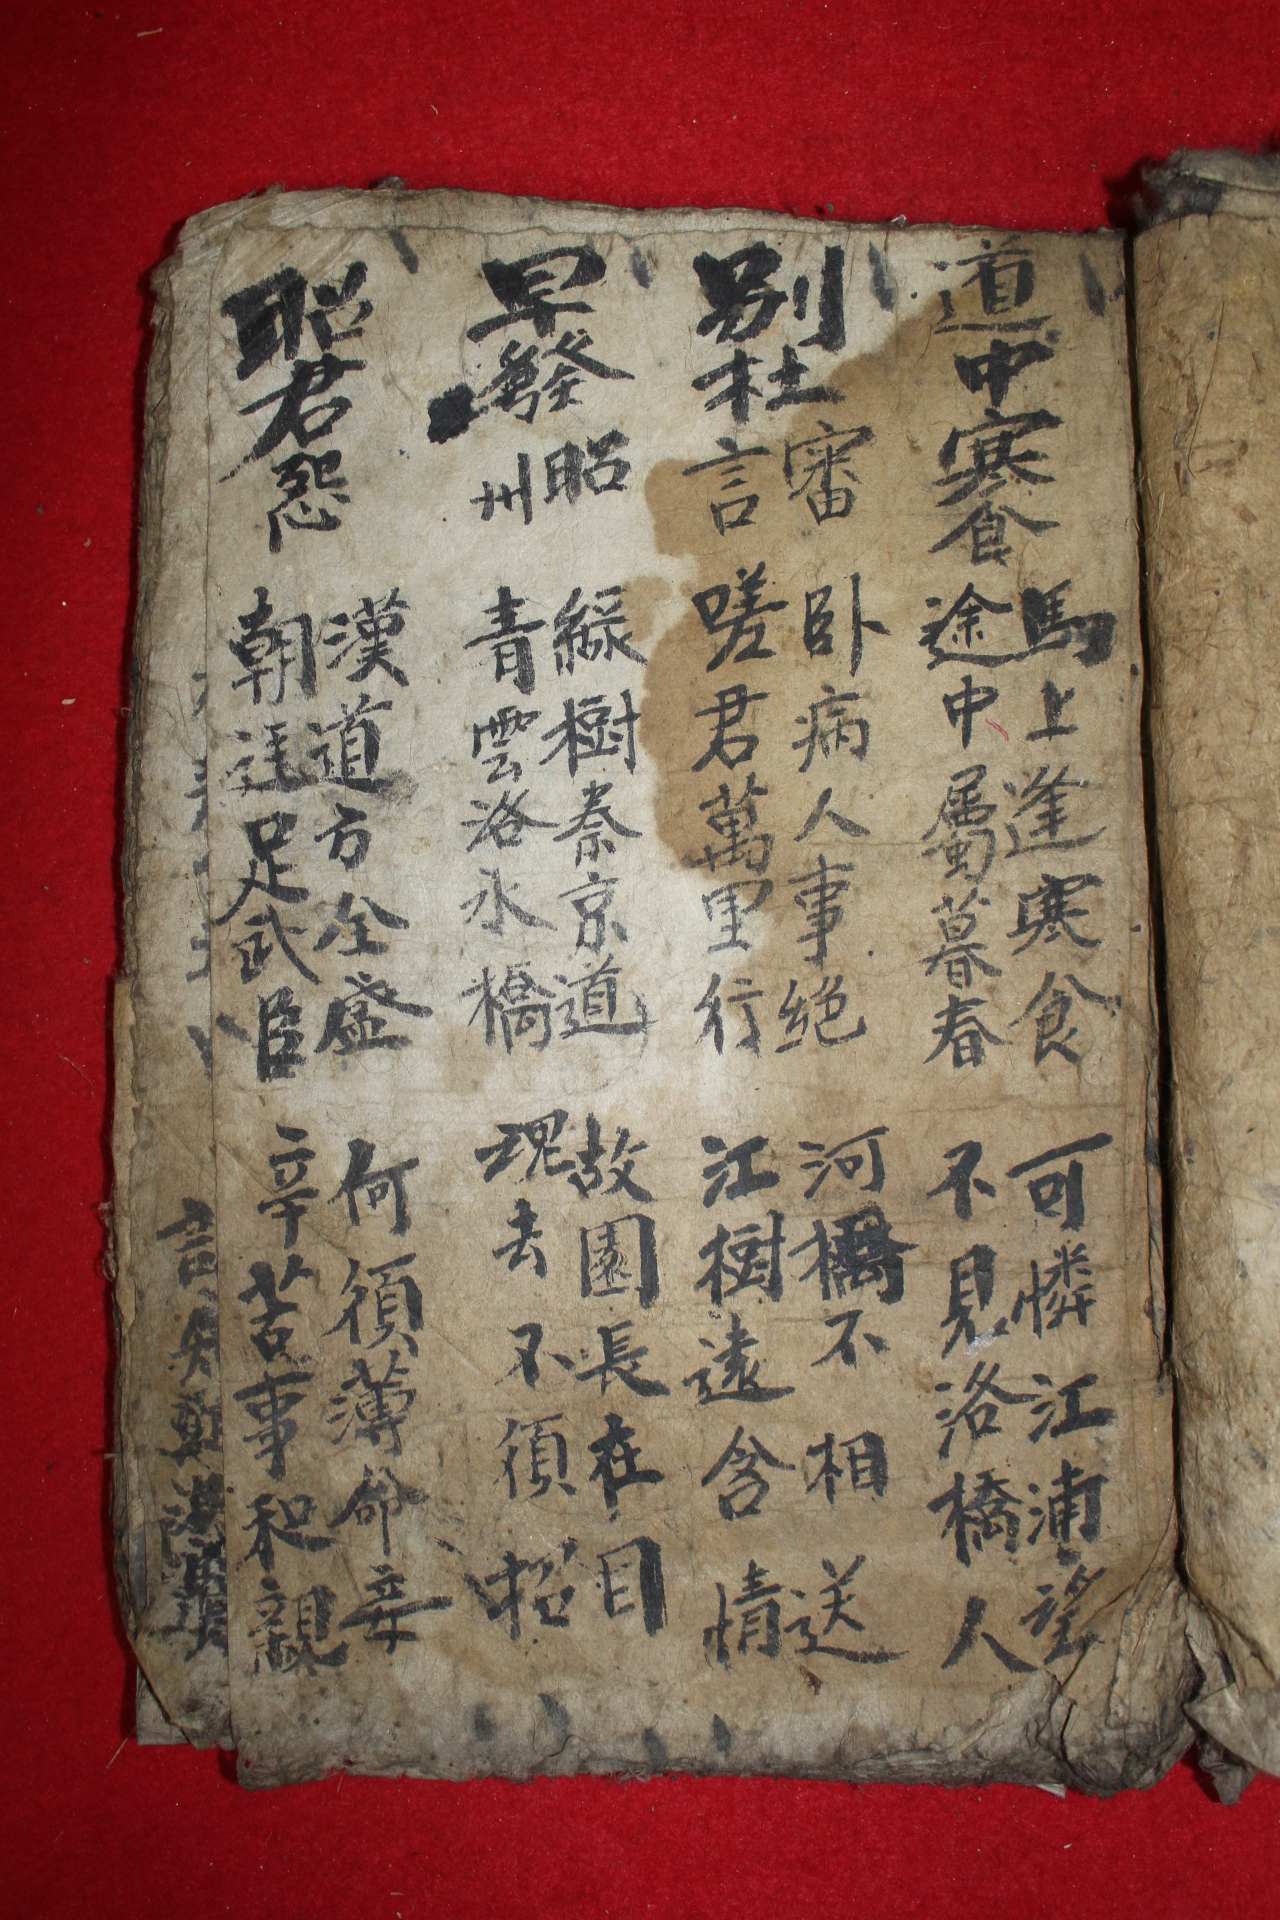 道中寒食
馬上逢寒食
途中屬暮春
可憐江浦望
不見洛橋人
別杜審言
卧病人事絶
嗟君萬里行
河橋不相送
江樹遠含情
早發昭州
綠樹秦京道
青雲洛水橋
故園長在目
魂去不須招
昭君怨
漢道方全盛
朝廷足武臣
何須薄命妾
辛苦事和親